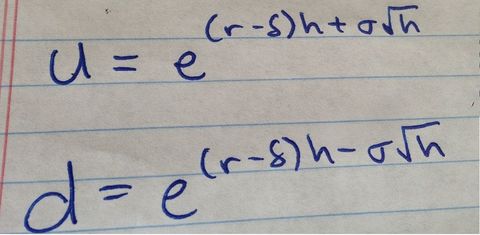 u = e^{(r-δ)h+σ√h}
d = e^{(r-δ)h-σ√h}